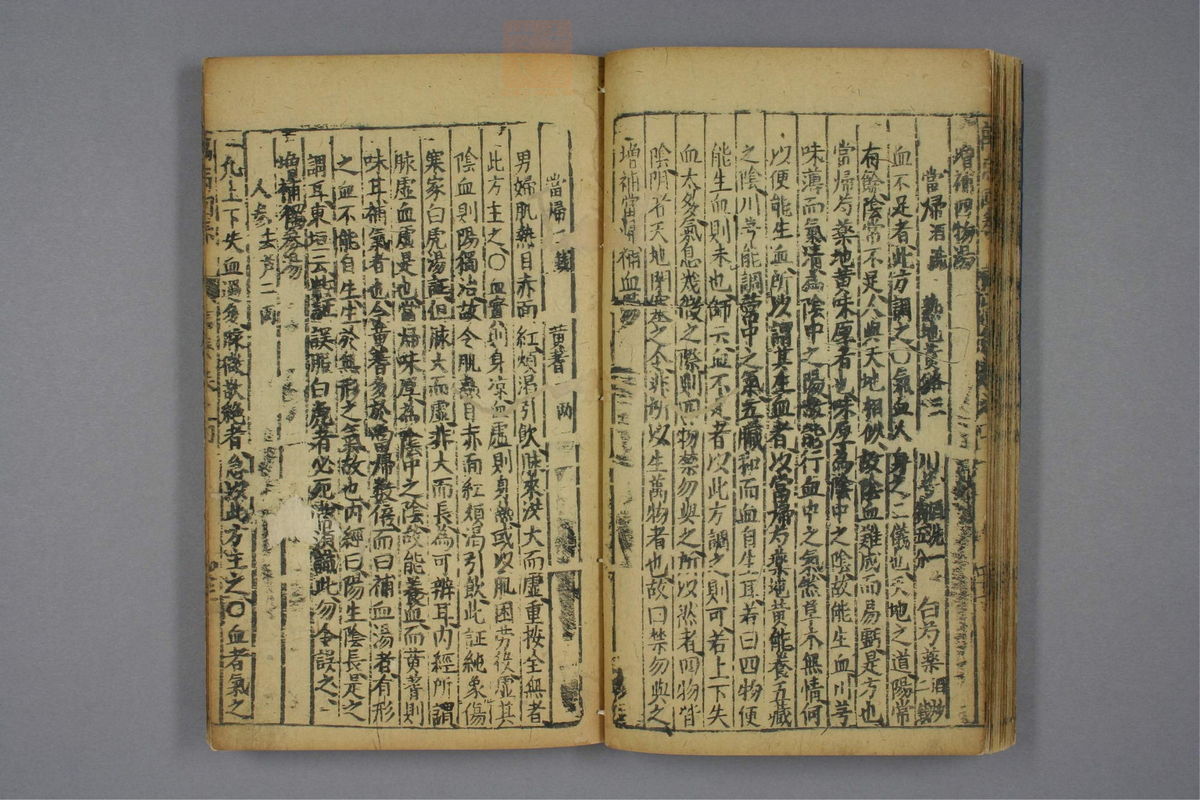 增補四物湯
當歸酒洗 熟地黃各三 川芎 白芍藥酒炒二錢
血不足者此方調之○氣血人身之二儀也天地之道陽常
有餘陰常不足人與天地相似故陰血難成而易虧是方也
當歸芍藥地黃味厚者也味厚為陰中之陰故能生血川芎
味薄而氣清為陰中之陽故能行血中之氣然草木無情何
以便能生血所以謂其生血者以當歸芍藥地黃能養五臟
之陰川芎能調營中之氣五臟和而血自生耳若曰四物便
能生血則未也師云血不足者以此方調之則可若上下失
血太多氣息幾微之際則四物禁勿與之所以然者四物皆
陰陰者天地閉塞之令非所以生萬物者也故曰禁勿與之
增補當歸補血湯
當歸二錢 黃蓍一兩
男婦肌熱目赤面紅煩渴引飲脉來洪大而虛重按全無者
此方主之○血實則身凉血虛則身熱或以肌困勞役虛其
陰血則陽獨治故令肌熱目赤面紅煩渴引飲此証純象傷
寒家白虎湯証但脉大而虛非大而長為可辨耳內經所謂
脉虛血虛是也當歸味厚為陰中之陰故能養血而黃蓍則
味耳補氣者也今黃蓍多於當歸數倍而曰補血湯者有形
之血不能自生生於無形之氣故也內經曰陽生陰長是之
謂耳東垣云此証誤服白虎者必死 識此勿令誤之
增補獨參湯
人參去芦二兩
凡上下失血過多脉微欲絕者急以此方主之○血者氣之